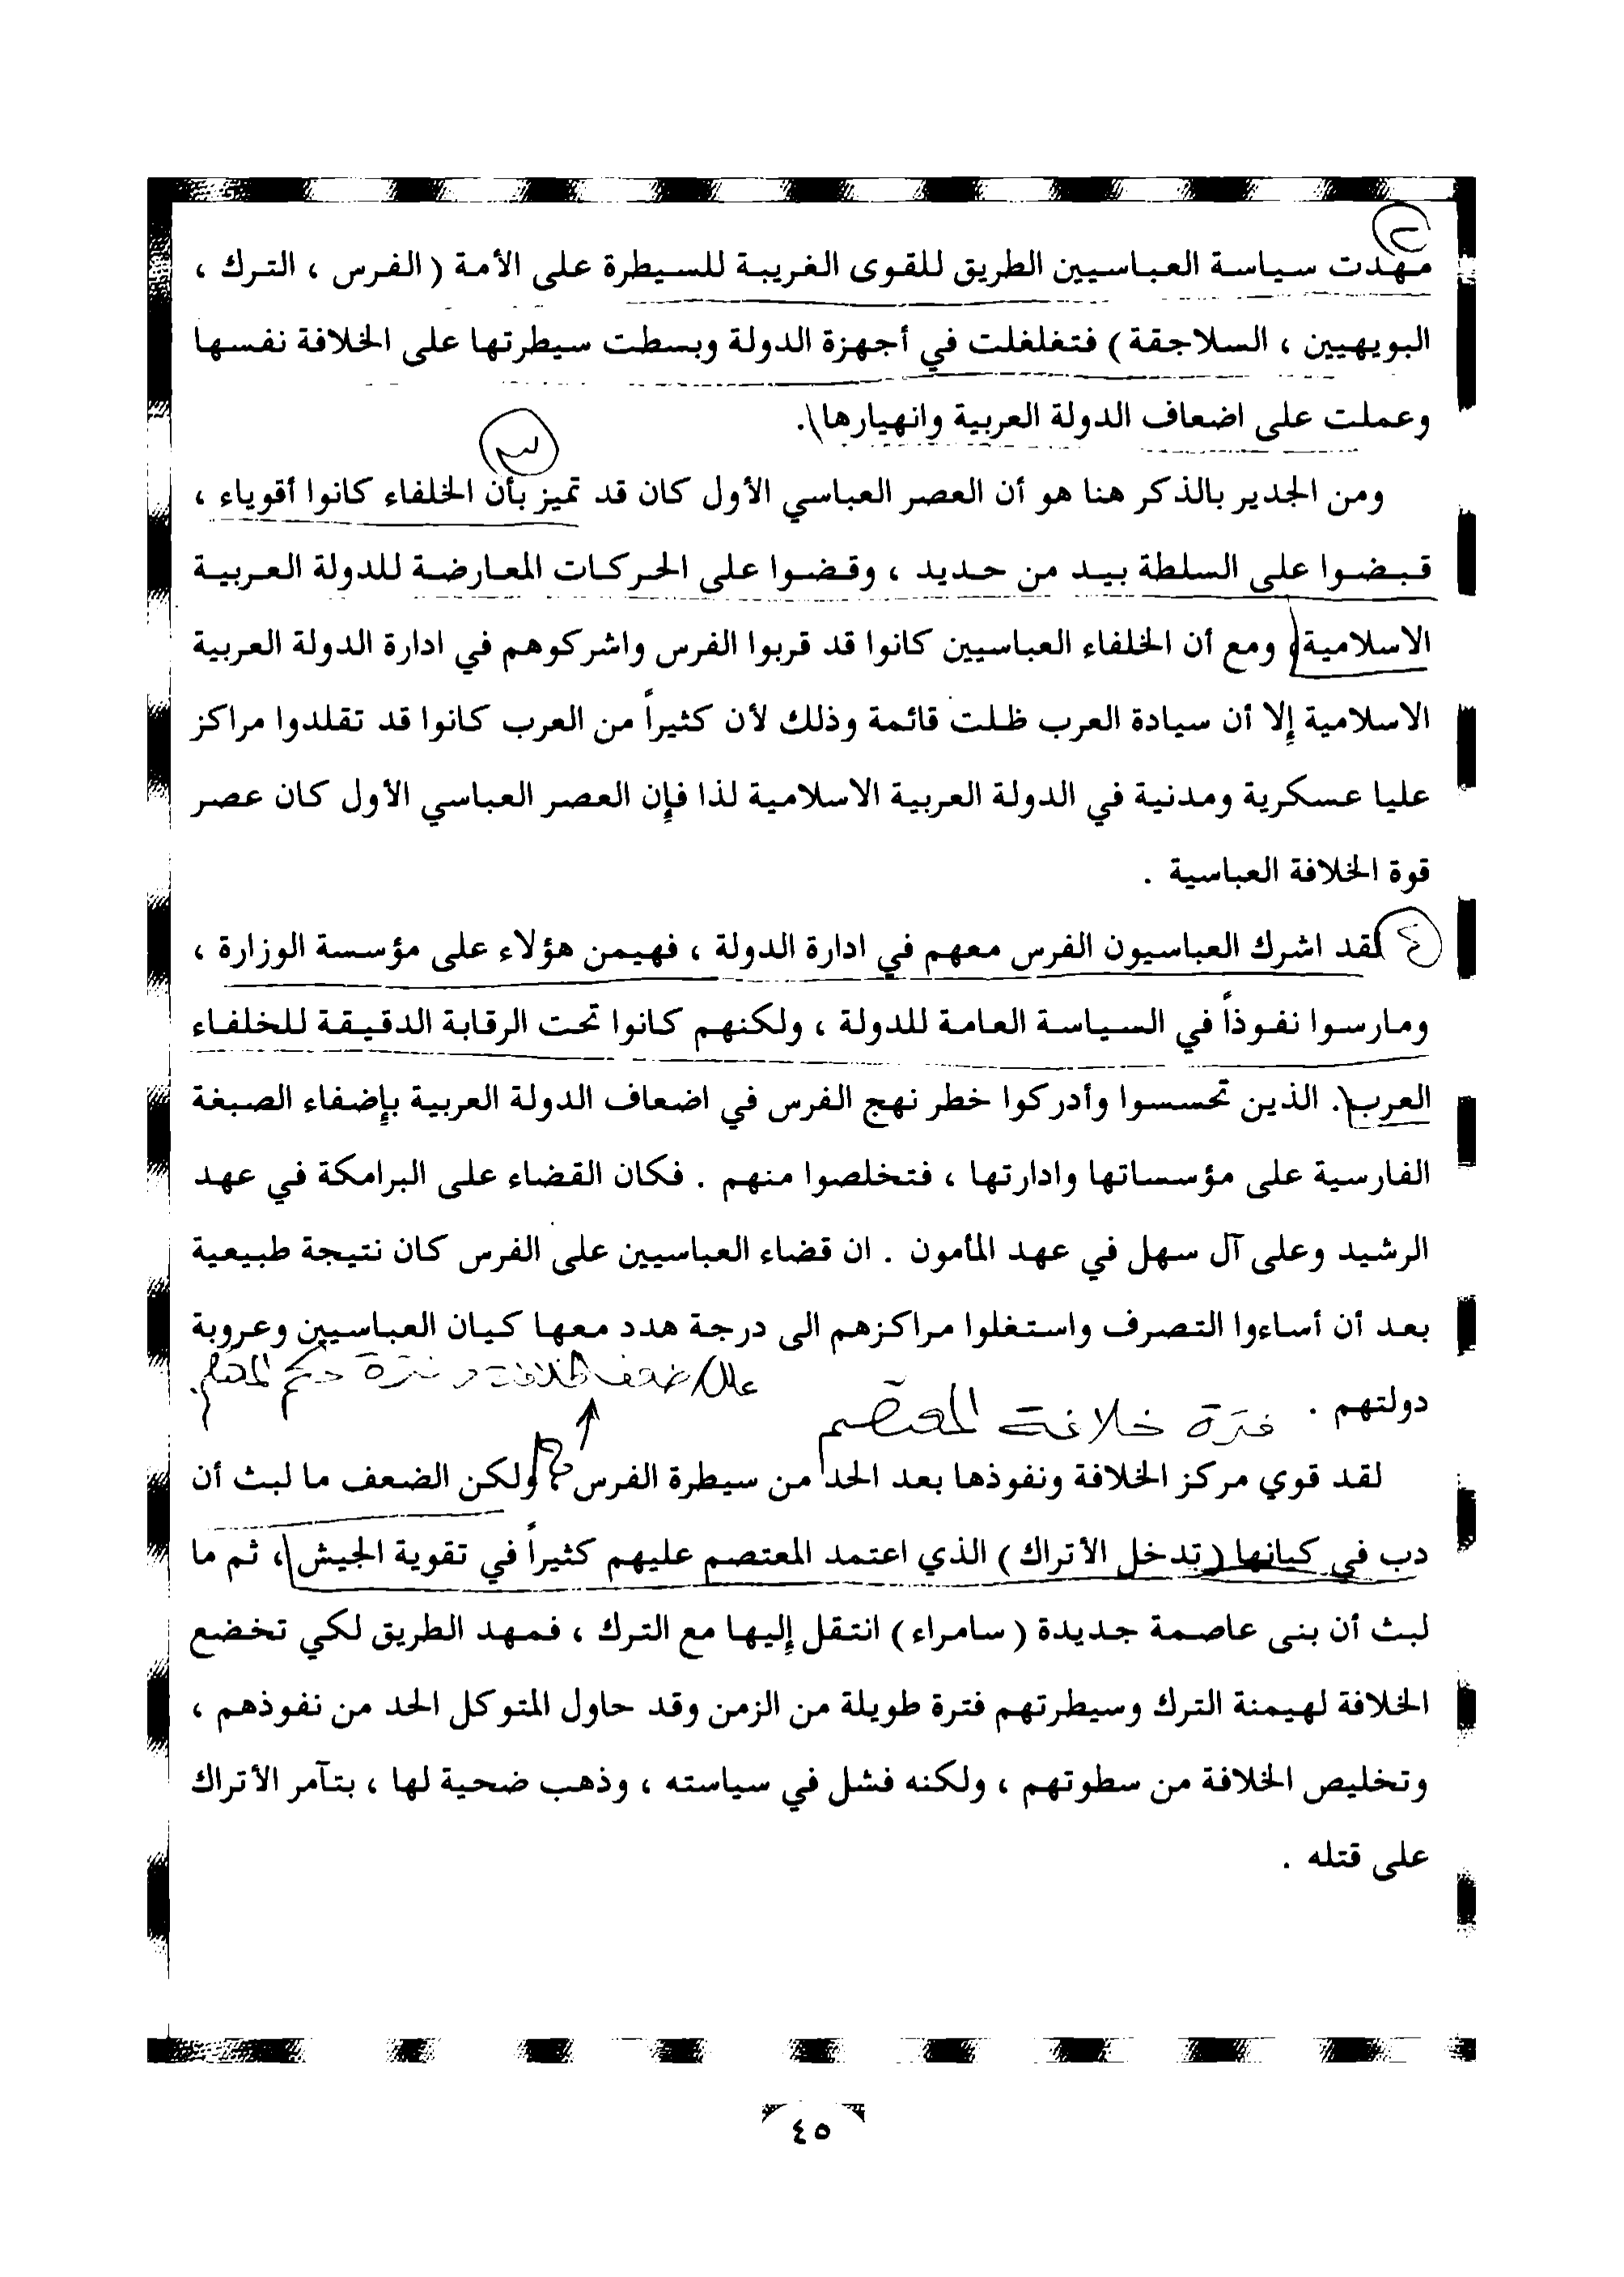 ٢
مهدت سياسة العباسيين الطريق للقوى الغريبة للسيطرة على الأمة ( الفرس ، الترك ،
البويهيين ، السلاجقة ) فتغلغلت في أجهزة الدولة وبسطت سيطرتها على الخلافة نفسها
وعملت على اضعاف الدولة العربية وانهيارها .
٣
ومن الجدير بالذكر هنا هو أن العصر العباسي الأول كان قد تميز بأن الخلفاء كانوا أقوياء ،
قبضوا على السلطة بيد من حديد ، وقضوا على الحركات المعارضة للدولة العربية
الاسلامية ، ومع أن الخلفاء العباسيين كانوا قد قربوا الفرس واشركوهم في ادارة الدولة العربية
الاسلامية إلا أن سيادة العرب ظلت قائمة وذلك لأن كثيراً من العرب كانوا قد تقلدوا مراكز
عليا عسكرية ومدنية في الدولة العربية الاسلامية لذا فإن العصر العباسي الأول كان عصر
قوة الخلافة العباسية .
٤ لقد اشرك العباسيون الفرس معهم في ادارة الدولة ، فهيمن هؤلاء على مؤسسة الوزارة ،
ومارسوا نفوذاً في السياسة العامة للدولة ، ولكنهم كانوا تحت الرقابة الدقيقة للخلفاء
العرب . الذين تحسسوا وأدركوا خطر نهج الفرس في اضعاف الدولة العربية بإضفاء الصبغة
الفارسية على مؤسساتها وادارتها ، فتخلصوا منهم . فكان القضاء على البرامكة في عهد
الرشيد وعلى آل سهل في عهد المأمون . ان قضاء العباسيين على الفرس كان نتيجة طبيعية
بعد أن أساءوا التصرف واستغلوا مراكزهم الى درجة هدد معها كيان العباسيين وعروبة
علل/ ضعف الخلافة فترة حكم المعتصم.
دولتهم . فترة خلافة المعتصم
لقد قوي مركز الخلافة ونفوذها بعد الحد من سيطرة الفرس ، ولكن الضعف ما لبث أن
دب في كيانها ( بتدخل الأتراك ) الذي اعتمد المعتصم عليهم كثيراً في تقوية الجيش ، ثم ما
لبث أن بنى عاصمة جديدة ( سامراء ) انتقل إليها مع الترك ، فمهد الطريق لكي تخضع
الخلافة لهيمنة الترك وسيطرتهم فترة طويلة من الزمن وقد حاول المتوكل الحد من نفوذهم ،
وتخليص الخلافة من سطوتهم ، ولكنه فشل في سياسته ، وذهب ضحية لها ، بتآمر الأتراك
على قتله .
٤٥